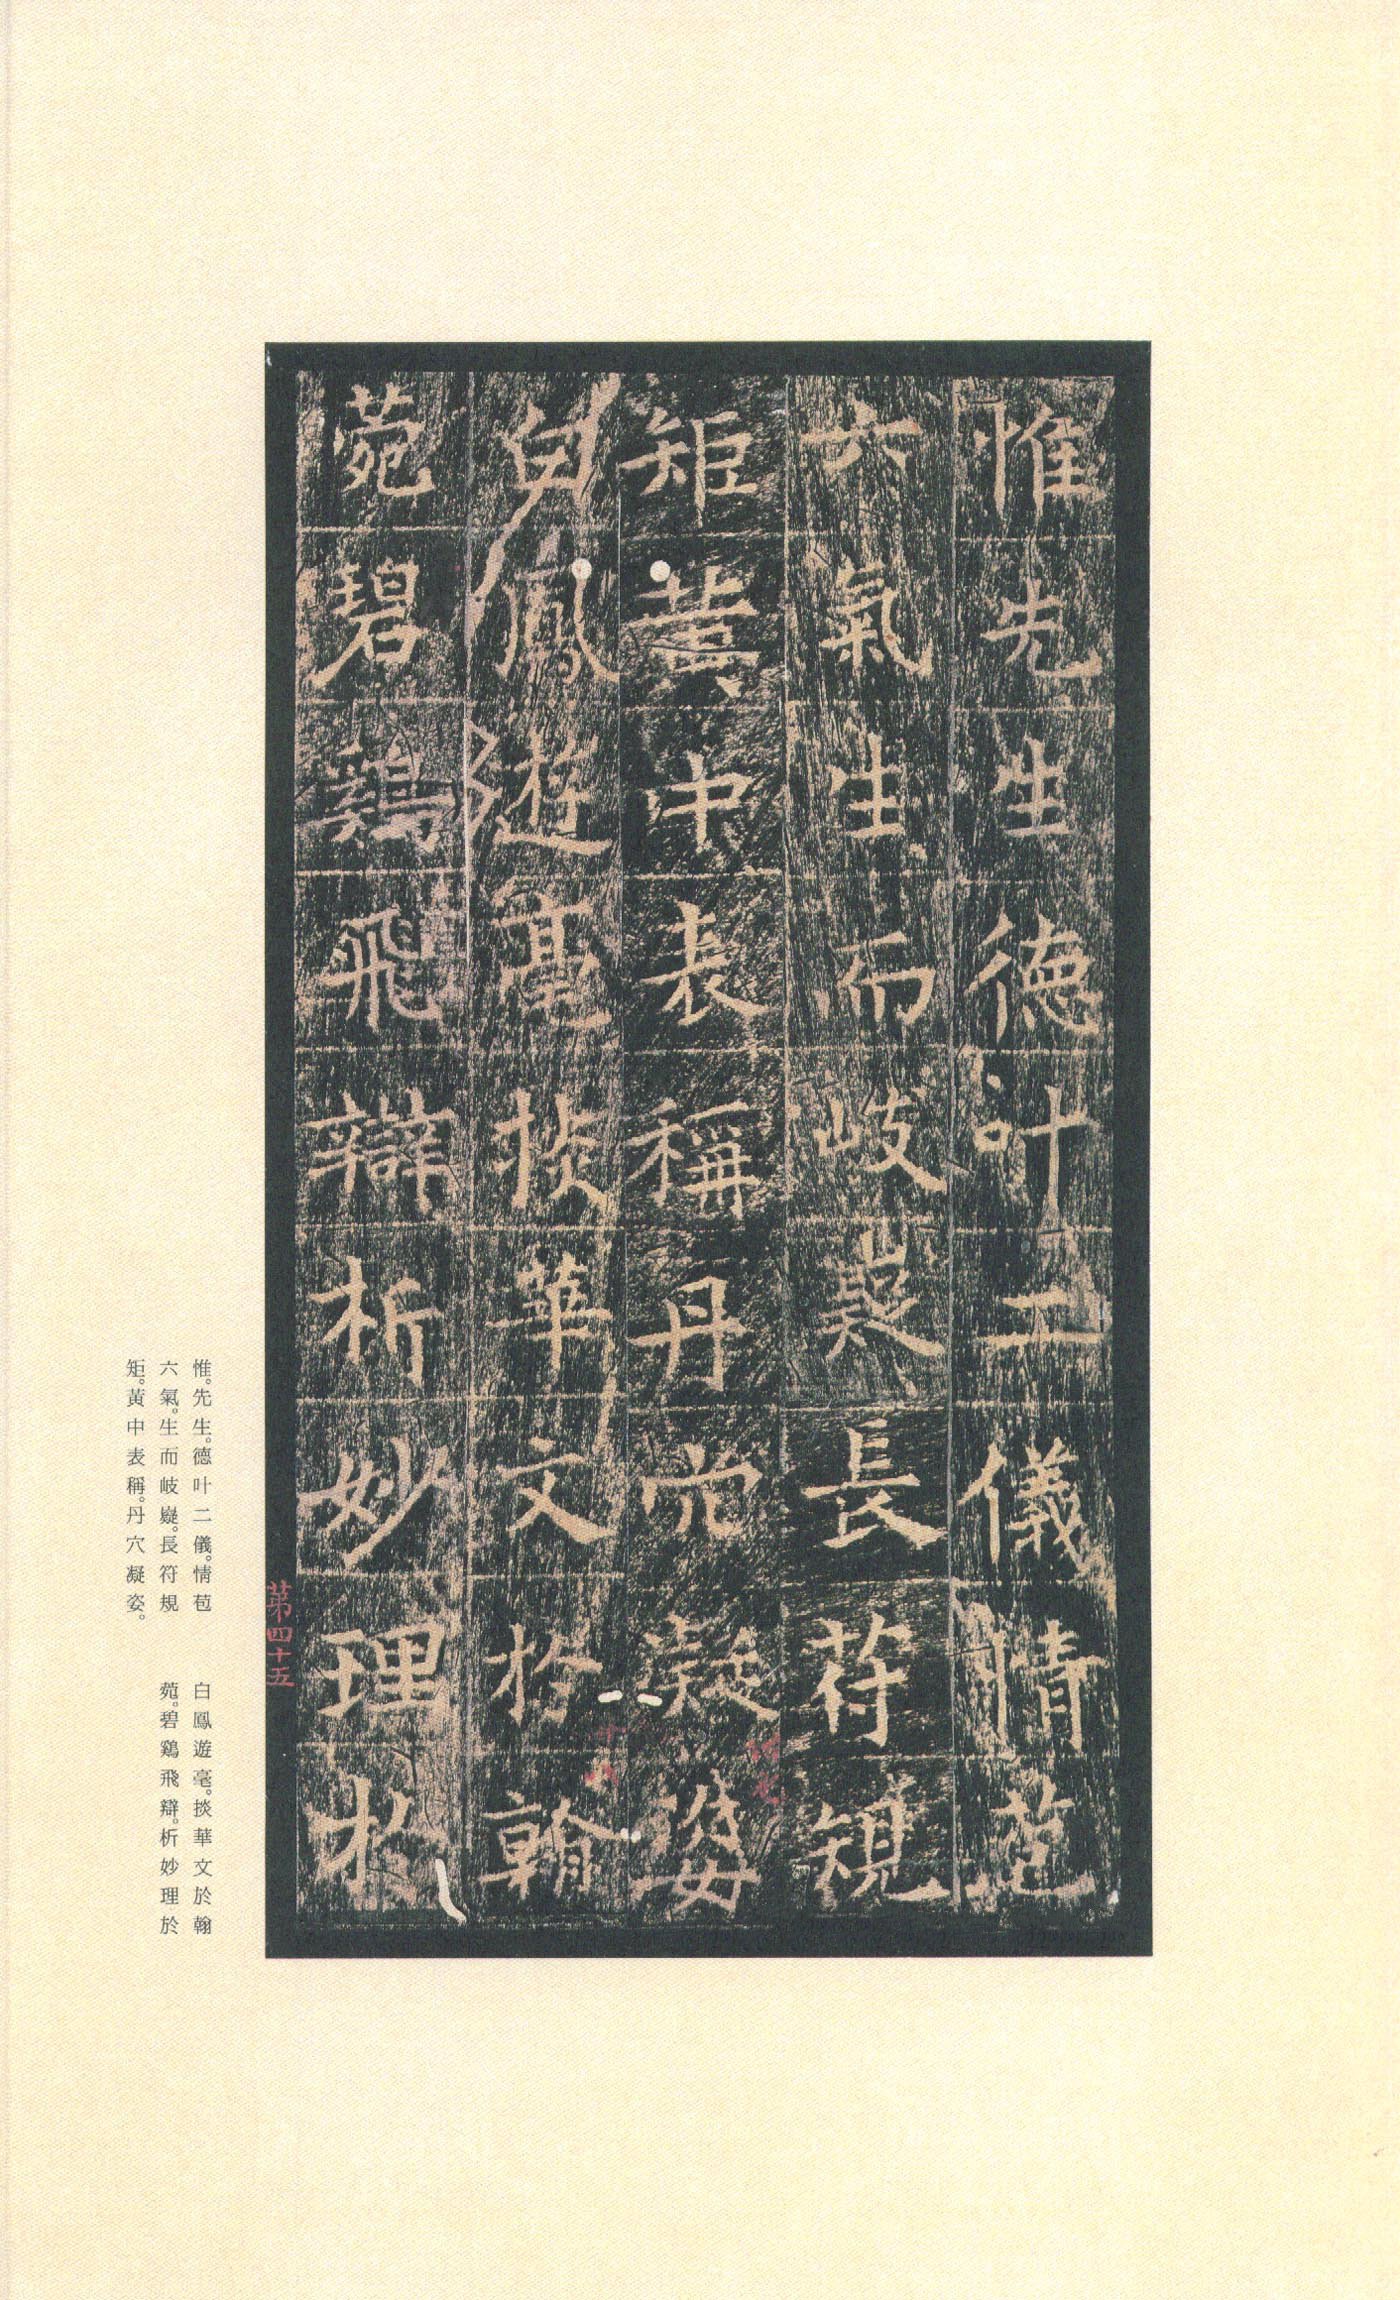 惟先生德叶二儀情苞
六氣生而岐嶷長符規
矩黃中表稱丹穴凝姿
白鳳遊毫掞華文於翰
菀碧鷄飛辯析妙理於
第四十五
惟。先生。德叶二儀。情苞
六氣。生而岐嶷。長符規
矩。黃中表稱。丹穴凝姿。
白。鳳遊毫。掞華文於翰
菀。碧鷄飛辯。析妙理於